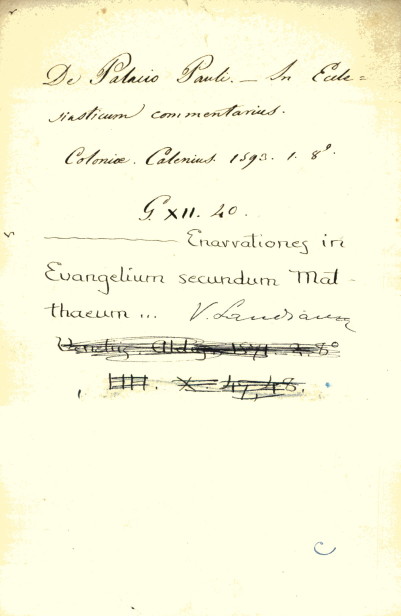 De Palacio Pauli. — In Eccle=
siasticum commentarius.
Coloniæ. Calenius. 1593. 1. 8º.
G. XII. 40.
Enarrationes in
Evangelium secundum Mat-
thaeum ... V.
8º
X. 47, 48.
C